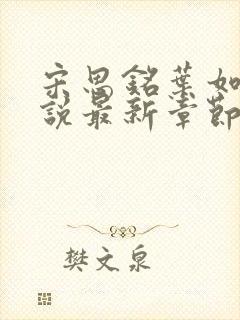 宋思铭葉如
說最新章節
樊文泉